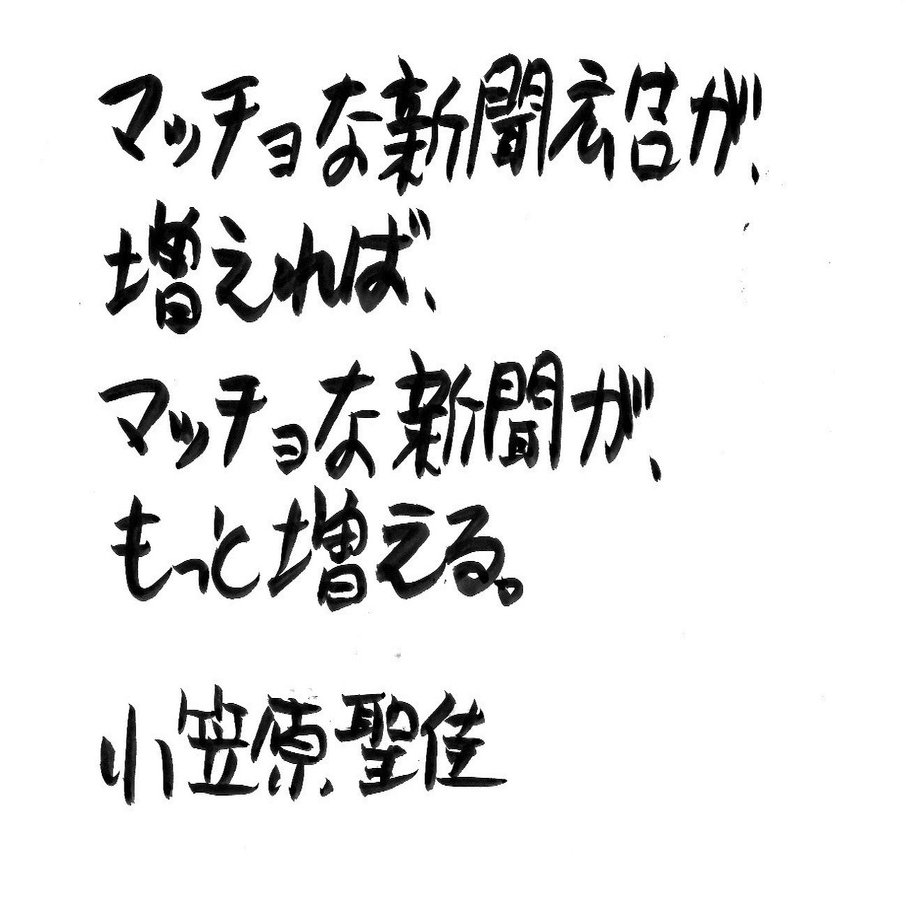 マッチョな新聞広告が、
増えれば、
マッチョな新聞が、
もっと増える。
小笠原聖佳